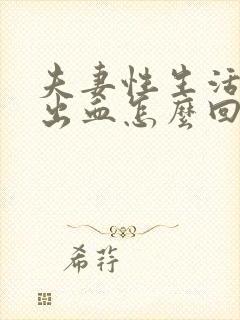 夫妻性生活
出血怎麼回
希荇